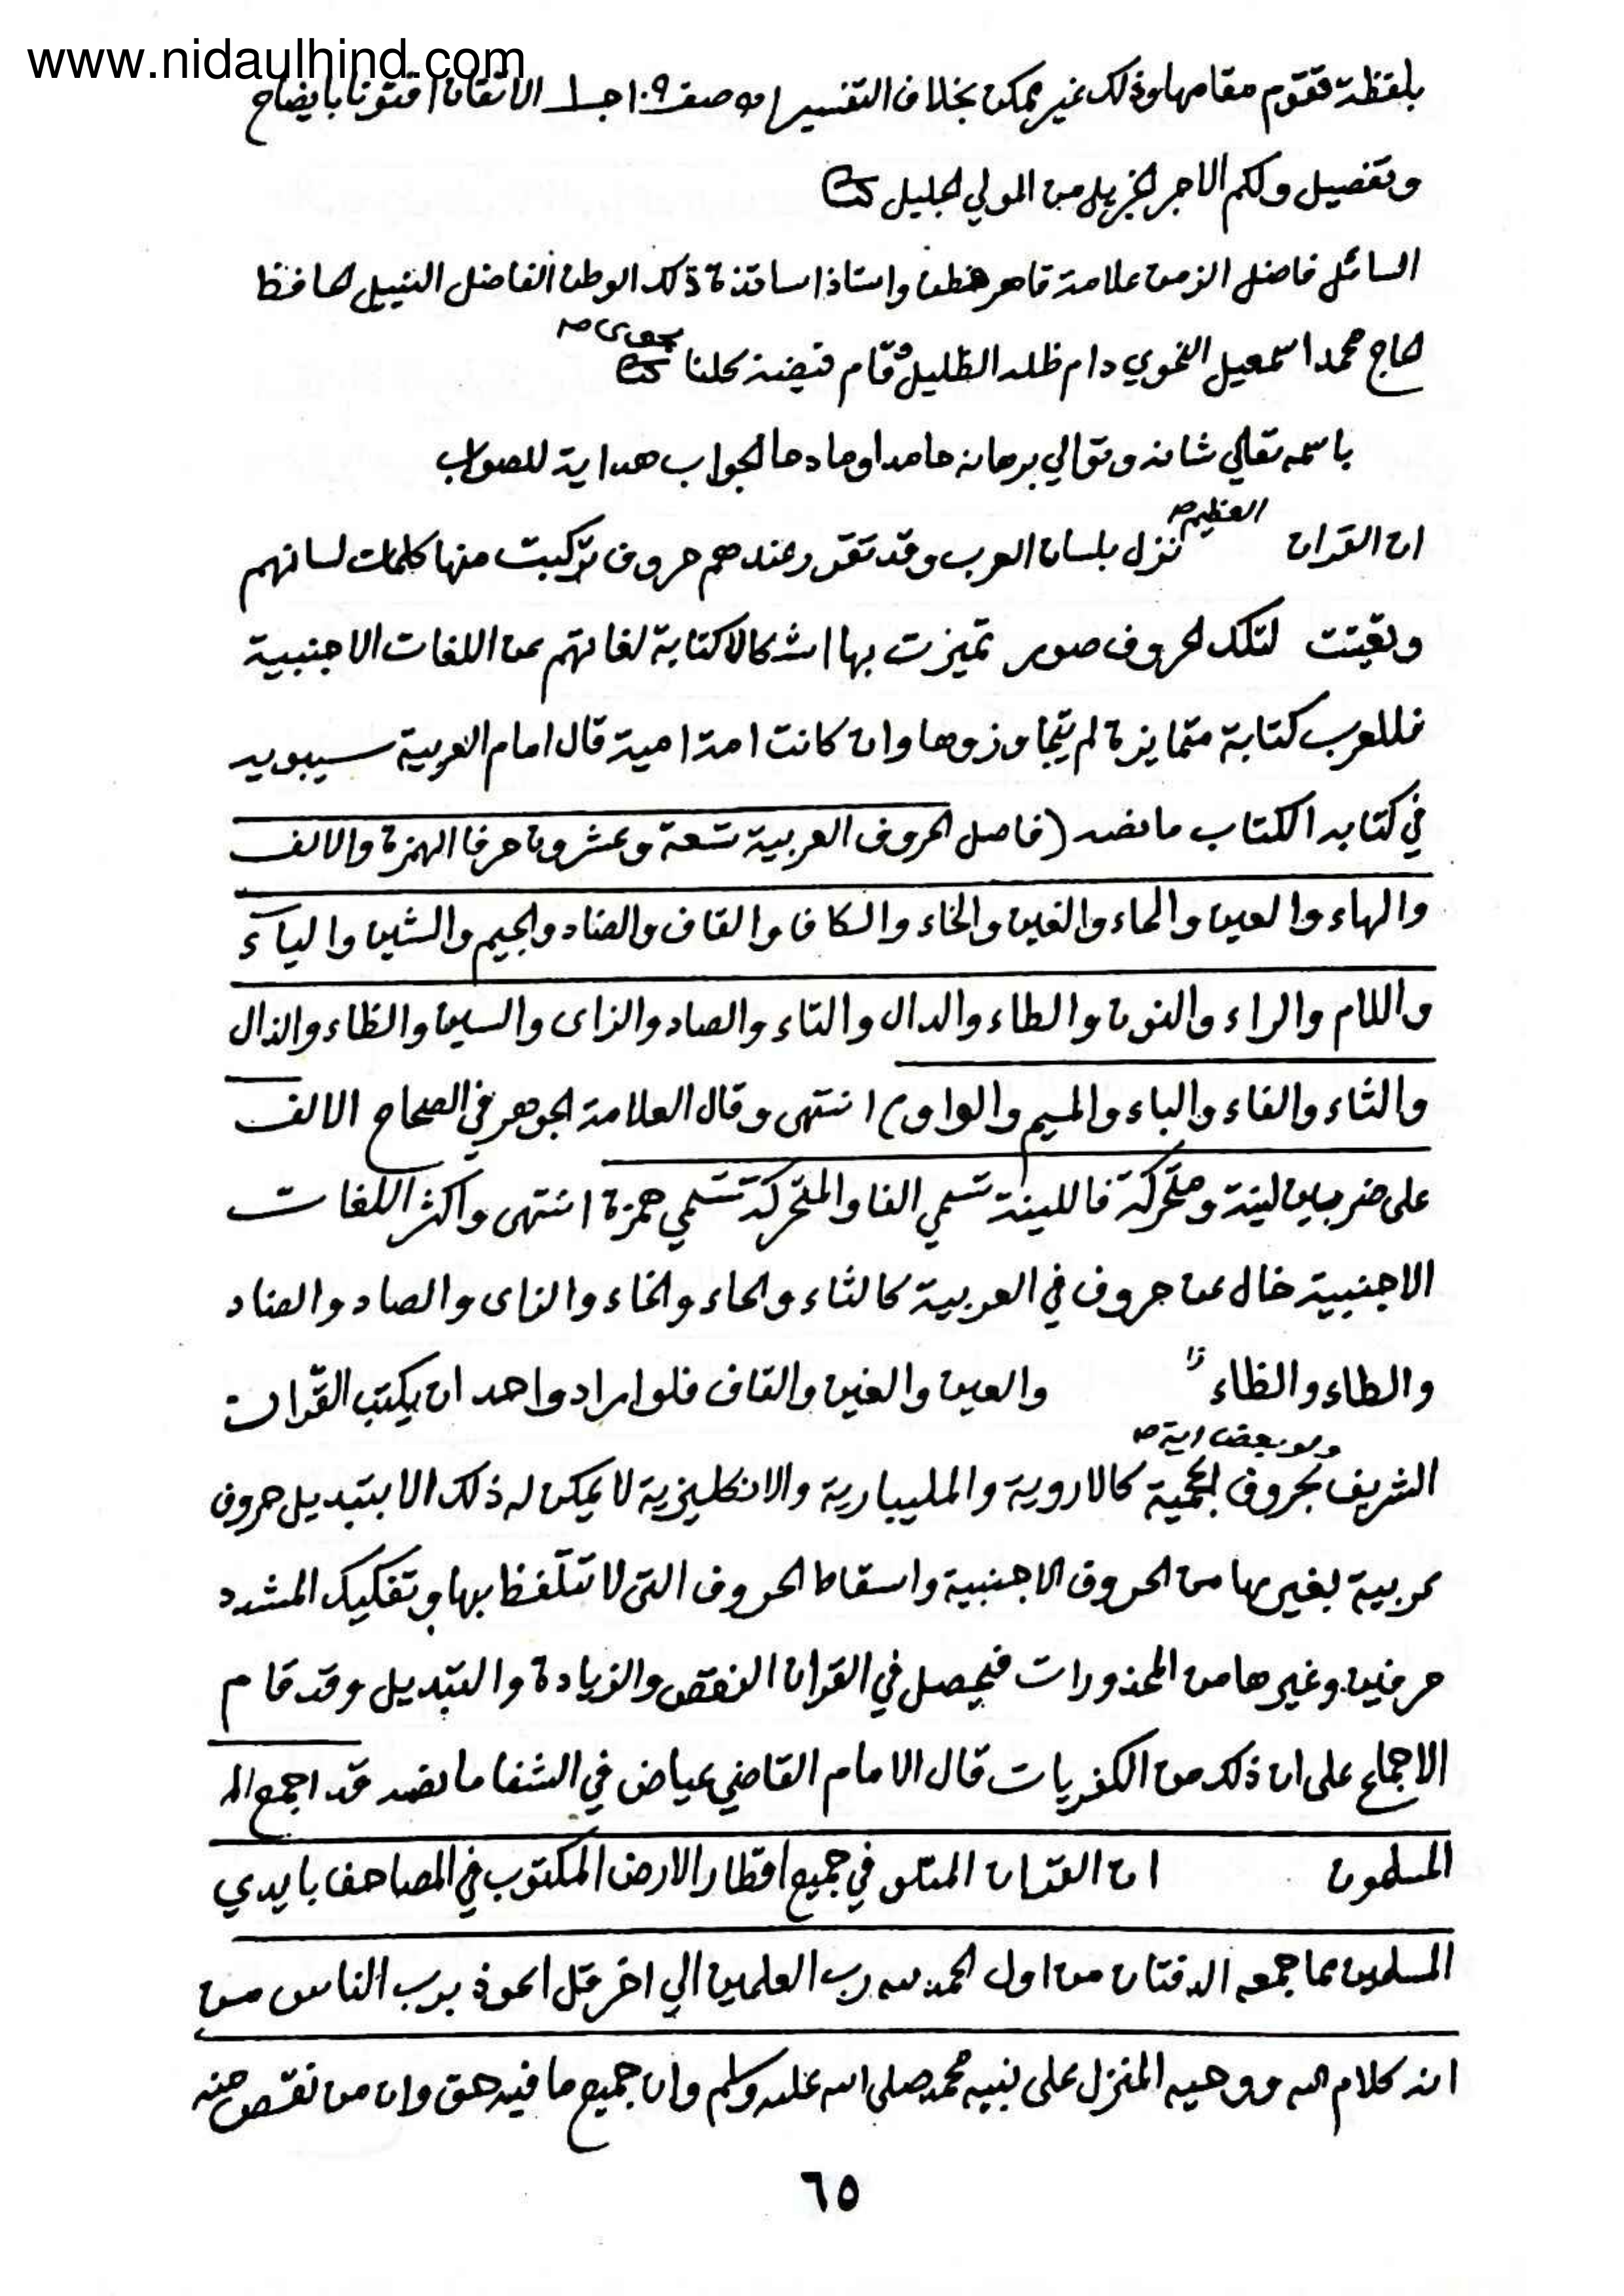 www.nidaulhind.com
بلفظة تقوم مقامها وذلك غير ممكن بخلاف التفسير اه صفـ١٠٩ جـ١ الاتقان افتونا بايضاح
وتفصيل ولكم الاجر الجزيل من المولي الجليل
السائل فاضل الزمن علامة قاهر فطن واستاذ اساتذة ذلك الوطن الفاضل النبيل الحافظ
الحاج محمد اسمعيل النحوي دام ظله الظليل وقام فيضه كلنا
باسمه تعالي شانه وتوالي برهانه حامدا ومادحا الجواب هداية للصواب
العظيم صح
ان القران نزل بلسان العرب وقد تقرر عندهم حروف تركبت منها كلمات لسانهم
وتعينت لتلك الحروف صور تميزت بها اشكالا كتابة لغاتهم عن اللغات الاجنبية
فللعرب كتابة متمايزة لم يتجاوزوها وان كانت امة امية قال امام العربية سيبويه
في كتابه الكتاب ما نصه (فاصل الحروف العربية تسعة وعشرون حرفا الهمزة والالف
والهاء والعين والحاء والغين والخاء والكاف والقاف والضاد والجيم والشين والياء
واللام والراء والنون والطاء والدال والتاء والصاد والزاى والسين والظاء والذال
والثاء والفاء والباء والميم والواو) انتهى وقال العلامة الجوهر في الصحاح الالف
على ضربين لينة ومتحركة فاللينة تسمي الفا والمتحركة تسمي همزة انتهى واكثر اللغات
الاجنبية خال عن حروف في العربية كالثاء والحاء والخاء والزاى والصاد والضاد
والطاء والظاء والعين والغين والقاف فلو اراد واحد ان يكتب القران
ولو بعض اية صح
الشريف بحروف اعجمية كالاروية والمليبارية والانكليزية لا يمكن له ذلك الا بتبديل حروف
عربية بغيرها من الحروف الاجنبية واسقاط الحروف التى لا تتلفظ بها وتفكيك المشدد
حرفين وغيرها من المحذورات فيحصل في القران النقص والزيادة والتبديل وقد قام
الاجماع على ان ذلك من الكفريات قال الامام القاضي عياض في الشفا ما نصه قد اجمع الـ
المسلمون ان القران المتلو في جميع اقطار الارض المكتوب في المصاحف بايدي
المسلمين مما جمعه الدفتان من اول الحمد لله رب العلمين الي اخر قل اعوذ برب الناس من
انه كلام الله ووحيه المنزل على نبيه محمد صلى الله عليه وسلم وان جميع ما فيه حق وان من نقص منه
٦٥